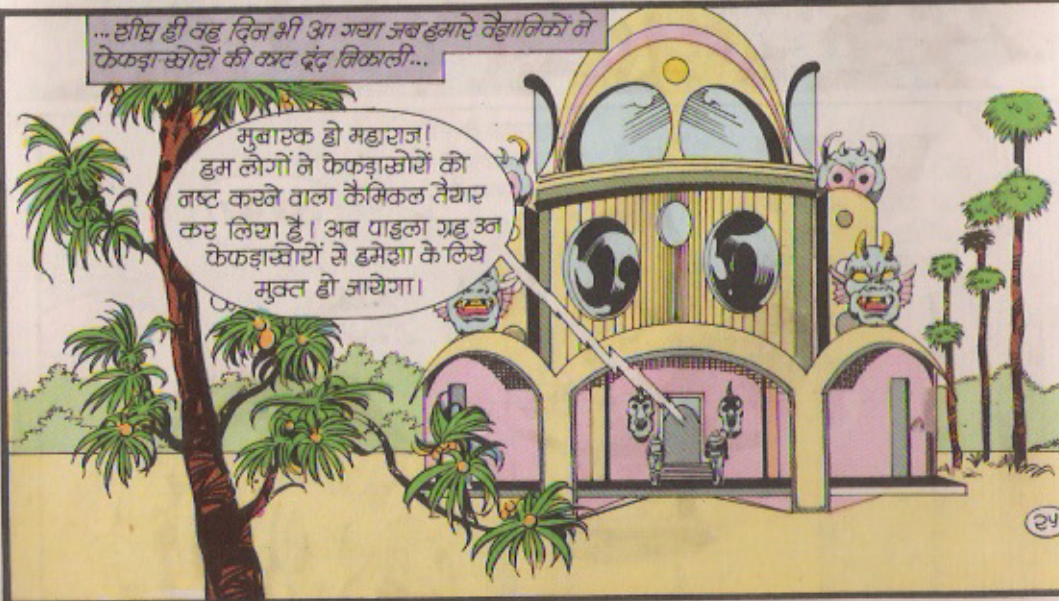 ... शीघ्र ही वह दिन भी आ गया जब हमारे वैज्ञानिकों ने
फेफड़ा-खोरों की काट ढूंढ़ निकाली...
मुबारक हो महाराज!
हम लोगों ने फेफड़ाखोरों को
नष्ट करने वाला कैमिकल तैयार
कर लिया है। अब पाइला ग्रह उन
फेफड़ाखोरों से हमेशा के लिये
मुक्त हो जायेगा।
२५